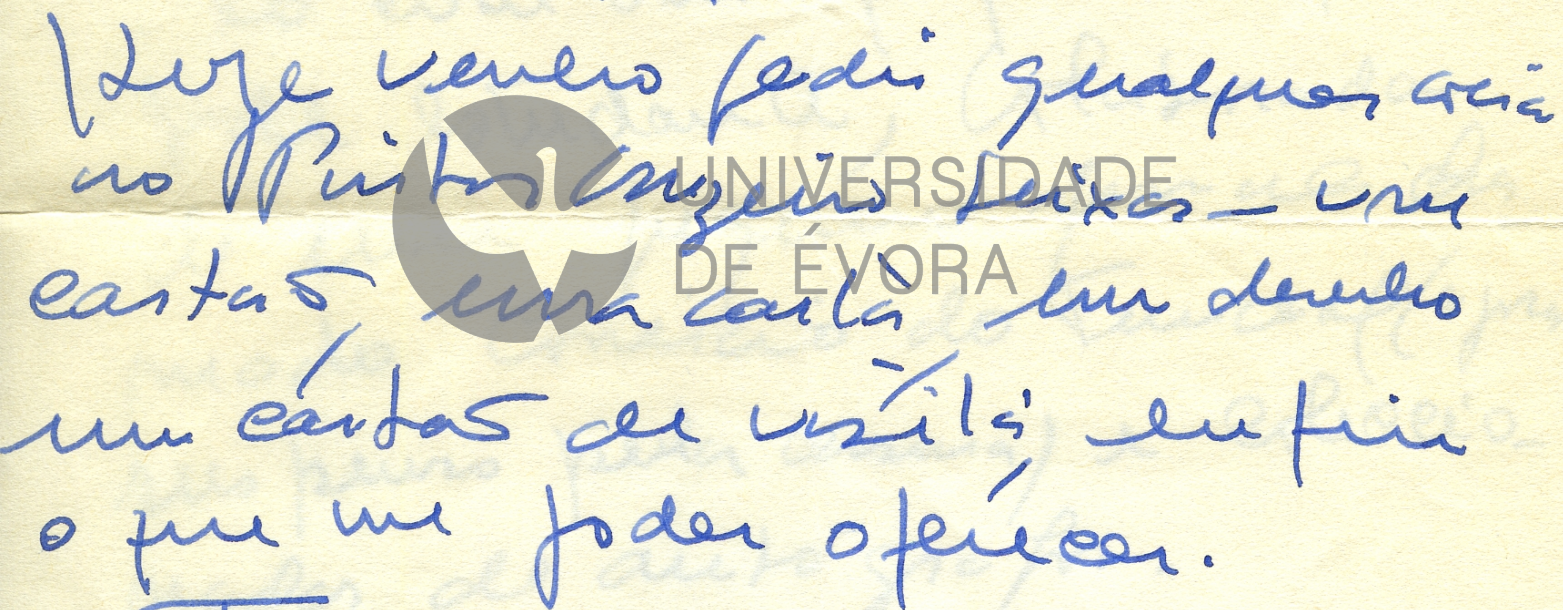 Hoje venho pedir qualquer coisa
ao Pintor Cruzeiro Seixas – um
cartão, uma carta, um desenho
um cartão de visita, enfim
o que me poder oferecer.
UNIVERSIDADE
DE ÉVORA